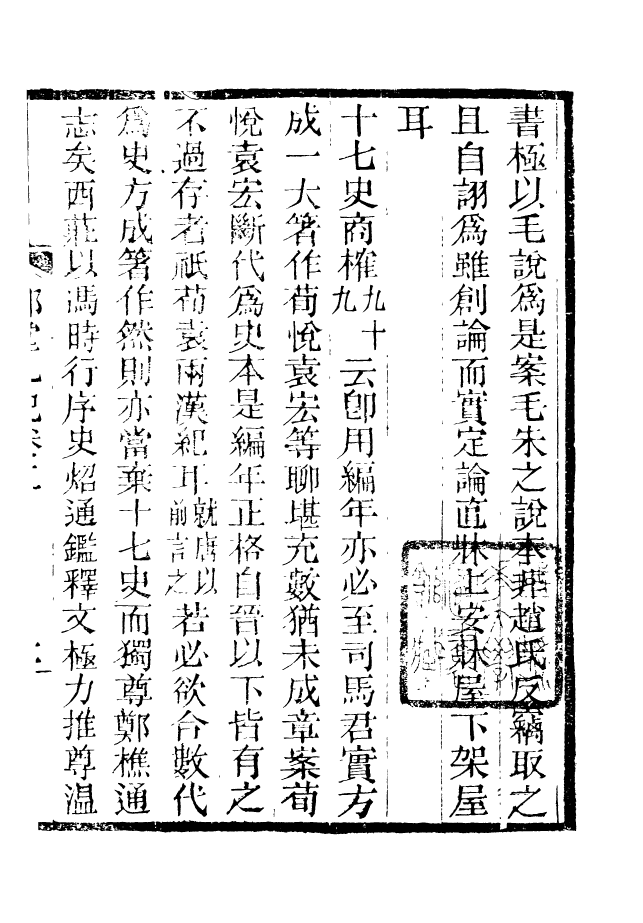 書極以毛說爲是案毛朱之說本非趙氏反竊取之
且自詡爲雖創論而實定論直牀上安牀屋下架屋
耳
十七史商榷九十九云卽用編年亦必至司馬君實方
成一大箸作荀悅袁宏等聊堪充數猶未成章案荀
悅袁宏斷代爲史本是編年正格自晉以下皆有之
不過存者祇荀袁兩漢紀耳就唐以前言之若必欲合數代
爲史方成箸作然則亦當棄十七史而獨尊鄭樵通
志矣西莊以馮時行序史炤通鑑釋文極力推尊溫